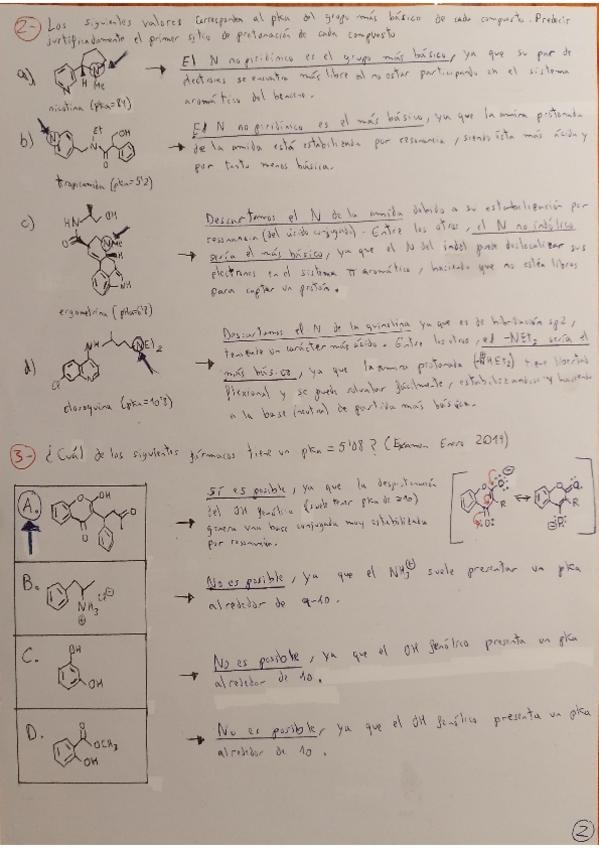 2- Los siguientes valores corresponden al pka del grupo más básico de cada compuesto. Predecir
justificadamente el primer sitio de protonación de cada compuesto
a)
N
N
Me
H
nicotina (pka=8'1)
→ El N no piridínico es el grupo más básico, ya que su par de
electrones se encuentra más libre al no estar participando en el sistema
aromático del benceno.
b)
N
Et
N
OH
O
tropicamida (pka=5'2)
→ El N no piridínico es el más básico, ya que la amina protonada
de la amida está estabilizada por resonancia, siendo ésta más ácida y
por tanto menos básica.
c)
HN
OH
O
NMe
H
NH
ergometrina (pka=6'8)
→ Descartamos el N de la amida debido a su estabilización por
resonancia (del ácido conjugado). Entre los otros, el N no indólico
sería el más básico, ya que el N del indol puede deslocalizar sus
electrones en el sistema π aromático, haciendo que no estén libres
para captar un protón.
d)
NH
NEt2
Cl
N
cloroquina (pka=10'8)
→ Descartamos el N de la quinolina ya que es de hibridación sp2,
teniendo un carácter más ácido. Entre los otros, el -NEt2 sería el
más básico, ya que la amina protonada (-NHEt2) tiene libertad
flexional y se puede solvatar fácilmente, estabilizandose y haciendo
a la base (neutra) de partida más básica.
3- ¿Cuál de los siguientes fármacos tiene un pka = 5'08? (Examen Enero 2014)
A.
O
OH
O
O
→ Sí es posible, ya que la desprotonación
del OH fenólico (suele tener pka de ≥10)
genera una base conjugada muy estabilizada
por resonancia.
B.
NH3
Cl
→ No es posible, ya que el NH3 suele presentar un pka
alrededor de 9-10.
C.
OH
OH
→ No es posible, ya que el OH fenólico presenta un pka
alrededor de 10.
D.
O
OCH3
OH
→ No es posible, ya que el OH fenólico presenta un pka
alrededor de 10.
2